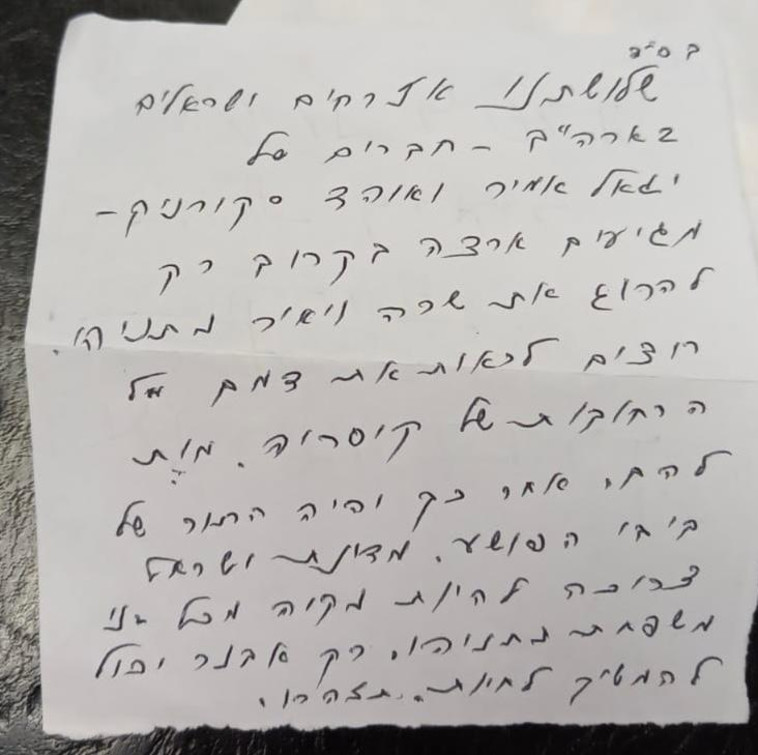 בס״ד
שלושתנו אזרחים ישראלים
בארה״ב - חברים של
יגאל אמיר ואוהד סקורניק -
מגיעים ארצה בקרוב רק
להרוג את שרה ויאיר נתניהו.
רוצים לראות את דמם על
הרחובות של קיסריה. מוות
להם. אחר כך יהיה התור של
ביבי הפושע. מדינת ישראל
צריכה להיות נקיה מכל בני
משפחת נתניהו. רק אבנר יכול
להמשיך לחיות. תזהרו.